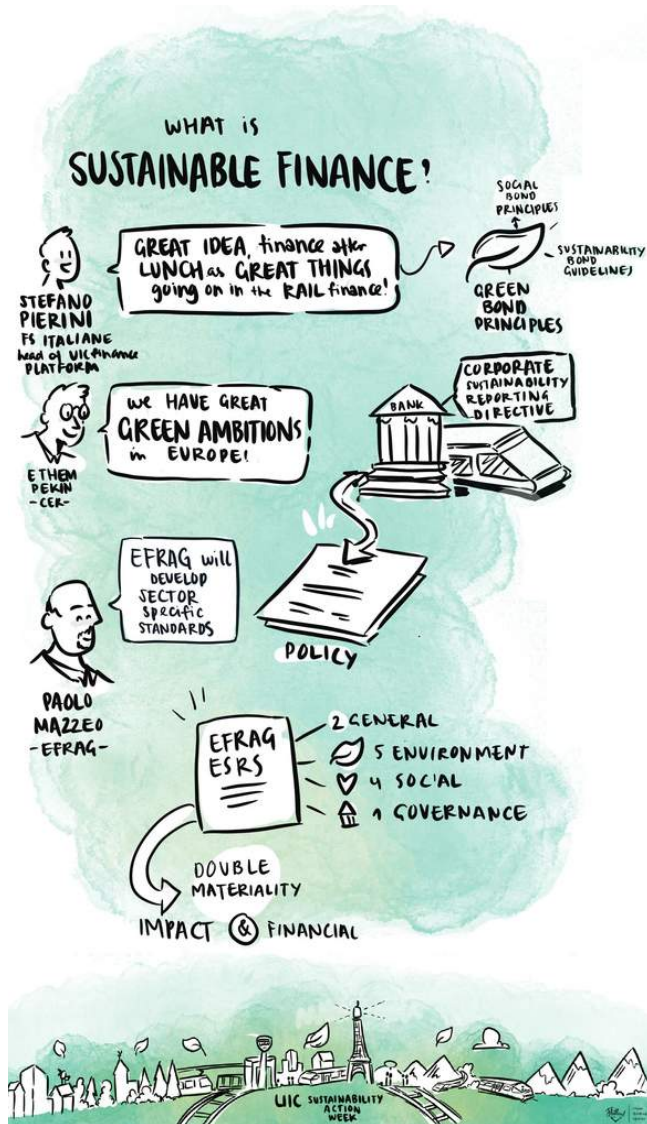 WHAT is
SUSTAINABLE FINANCE?
STEFANO
PIERINI
FS ITALIANE
head of UIC finance
PLATFORM
GREAT IDEA, finance after
LUNCH as GREAT THINGS
going on in the RAIL finance!
SOCIAL
BOND
PRINCIPLES
SUSTAINABILITY
BOND
GUIDELINES
GREEN
BOND
PRINCIPLES
ETHEM
PEKIN
-CER-
WE HAVE GREAT
GREEN AMBITIONS
in EUROPE!
BANK
CORPORATE
SUSTAINABILITY
REPORTING
DIRECTIVE
PAOLO
MAZZEO
-EFRAG-
EFRAG will
DEVELOP
SECTOR
specific
STANDARDS
POLICY
EFRAG
ESRS
2 GENERAL
5 ENVIRONMENT
4 SOCIAL
1 GOVERNANCE
DOUBLE
MATERIALITY
IMPACT & FINANCIAL
UIC SUSTAINABILITY
ACTION
WEEK